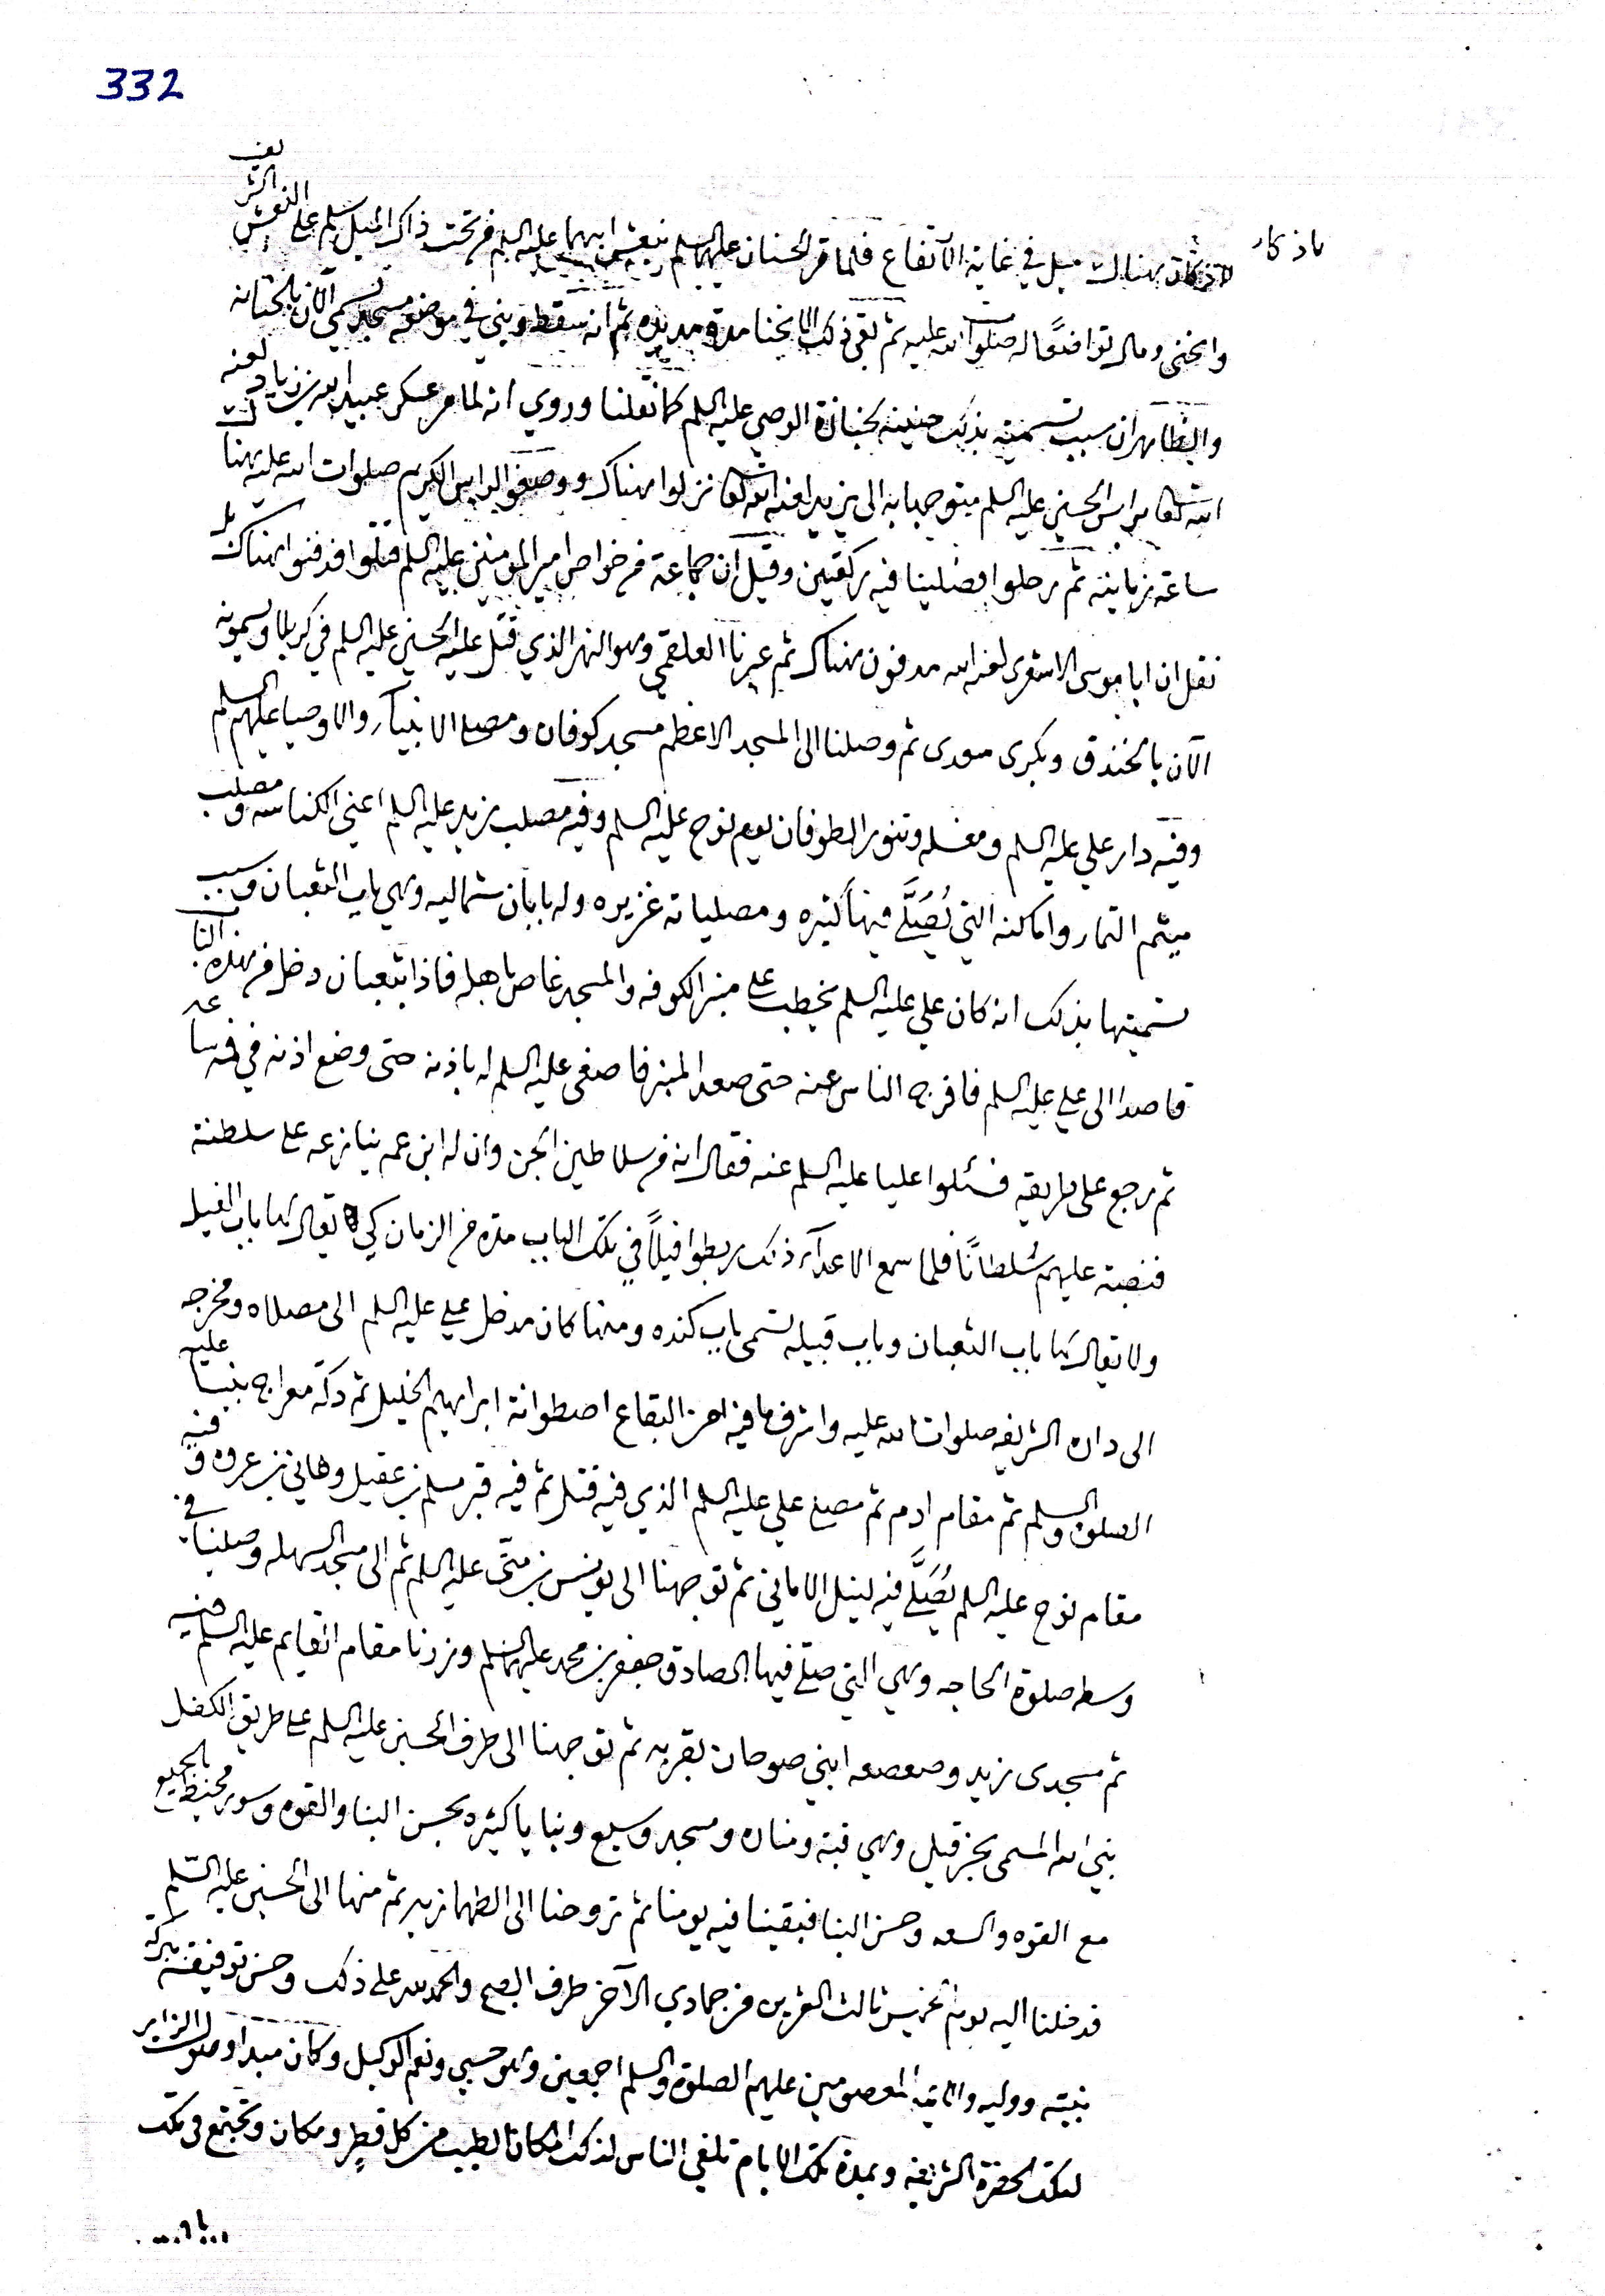 332
لاذكان هناك ميل في غاية الارتفاع فلما مر الحسنان عليهما السلم بنعش ابيهما عليه السلم من تحت ذاك الميل سلم على النعش الشريف
واىحنى ومال تواضعًا له صلوات الله عليه ثم بقى ذلك الانحنا مدة مديده ثم انه سقط وبني في موضعه مسجد تسمى الآن بالحنانه
والظاهران سبب تسميته بذلك حنينه لجنازة الوصي عليه السلم كما نقلنا وروي انه لما مر عسكر عبيد الله بن زياد لعنه
الله تعالى براس الحسين عليه السلم متوجها به الى يزيد لعنه الله تعالى نزلوا هناك ووضعوا الراس الكريم صلوات الله عليه هناك
ساعة زمانية ثم رحلوا فصلينا فيه ركعتين وقيل ان جماعة من خواص امير المومنين عليه السلم قتلوا فدفنوا هناك بل
نقل ان ابا موسى الاشعرى لعنه الله مدفون هناك ثم عبرنا العلقمي وهو النهر الذي قتل عليه الحسين عليه السلم في كربلا ويسمونه
الآن بالخندق وبكرى سعدى ثم وصلنا الى المسجد الاعظم مسجد كوفان ومصلى الانبيآء والاوصيا عليهم السلم
وفيه دار علي عليه السلم ومغسله وتنور الطوفان يوم نوح عليه السلم وفيه مصلب زيد عليه السلم اعنى الكناسه ومصلب
ميثم التمار واماكنه التي يُصَلَّى فيها كثيره ومصلياته غزيره وله بابان شماليه وهي باب الثعبان وسبب
تسميتها بذلك انه كان علي عليه السلم يخطب على منبر الكوفه والمسجد غاص باهله فاذا بثعبان دخل من هذه الباب
قاصدا الى علي عليه السلم فافرج الناس عنه حتى صعد المنبر فاصغى عليه السلم له باذنه حتى وضع اذنه في فمه ساعه
ثم رجع على طريقه فسئلوا عليا عليه السلم عنه فقال انه من سلاطين الجن وان له ابن عم ينازعه على سلطنة
فنصبته عليهم سُلطانًا فلما سمع الاعدآء ذلك ربطوا فيلاً في تلك الباب مدة من الزمان كي يقال لها باب الفيل
ولا يقال لها باب الثعبان وباب قبيله تسمى باب كنده ومنها كان مدخل علي عليه السلم الى مصلاه ومخرجه
الى داره الشريفه صلوات الله عليه واشرف ما فيه من البقاع اصطوانة ابراهيم الخليل ثم دكة معراج نبينا عليه
الصلوة والسلم ثم مقام ادم ثم مصلى علي عليه السلم الذي فيه قتل ثم فيه قبر مسلم بن عقيل وهاني بن عروه وفيه
مقام نوح عليه السلم يُصَلَّى فيه لنيل الاماني ثم توجهنا الى يونس بن متى عليه السلم ثم الى مسجد السهله وصلينا في
وسطه صلوة الحاجه وهي التي صلى فيها الصادق جعفر بن محمد عليهما السلم وزرنا مقام القايم عليه السلم فيه
ثم مسجدى زيد وصعصعه ابني صوحان بقربه ثم توجهنا الى طرف الحسين عليه السلم على طريق الكفل
نبي الله المسمى بحزقيل وهي قبة ومناره ومسجد وسيع وبنايا كثيره بحسن البنا والقوه وسور محيط بالجميع
مع القوه والسعه وحسن البنا فبقينا فيه يومنا ثم تروحنا الى الطهمازيه ثم منها الى الحسين عليه السلم
فدخلنا اليه يوم الخميس ثالث العشرين من جمادي الآخر طرف الصبح والحمد لله على ذلك وحسن توفيقه ببركة
نبيه ووليه والايمه المعصومين عليهم الصلوة والسلم اجمعين وهو حسبي ونعم الوكيل وكان مبدا وصول الزاير
لتلك الحضرة الشريفه وبمدة تلك الايام تلفي الناس لذلك المكان الطيب من كل قطرٍ ومكان وتجتمع في تلك